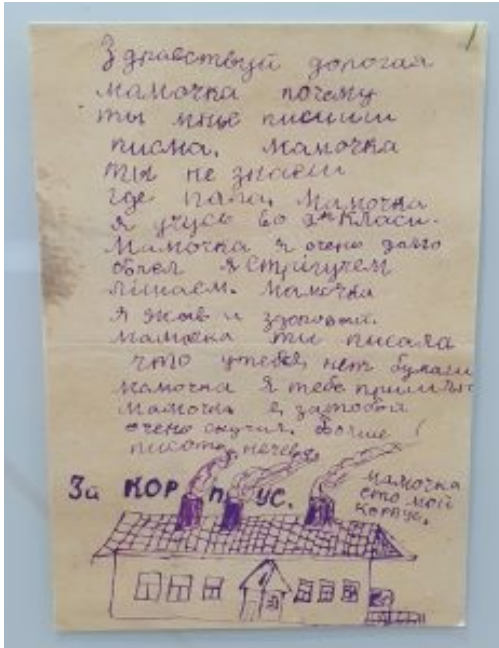 Здравствуй дорогая
мамочка почему
ты мнье пишиш
писма. мамочка
ты не знаеш
где папа. мамочка
я учусь во 2м класи.
мамочка я очень долго
болел я стрігучем
лішаем. мамочка
я жыв и здоровый.
мамочка ты писала
что утебе нет бумаги
мамочка я тебе пришлю
мамочка я затобой
очень скучил. больше
писать нечево
За КОРПУС.
мамочка
ето мой
корпус.